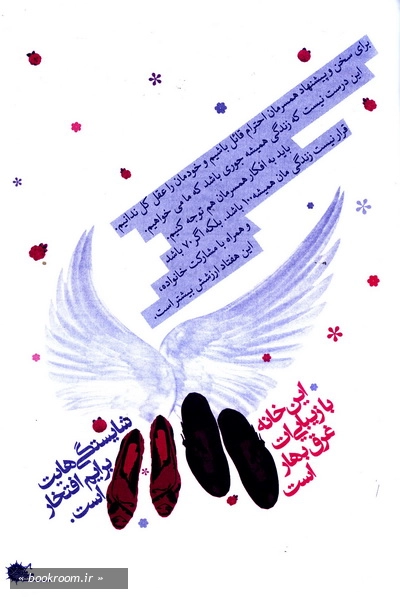 برای سخن و پیشنهاد همسرمان احترام قائل باشیم و خودمان را عقل کل ندانیم.
این درست نیست که زندگی همیشه جوری باشد که ما می خواهیم.
باید به افکار همسرمان هم توجه کنیم.
قرار نیست زندگی مان همیشه ۱۰۰ باشد. بلکه اگر ۷۰ باشد
و همراه با مشارکت خانواده،
این هفتاد ارزشش بیشتر است.
این خانه
با زیبایی‌ات
غرق بهار
است
شایستگی‌هایت
برایم افتخار
است.
« bookroom.ir »